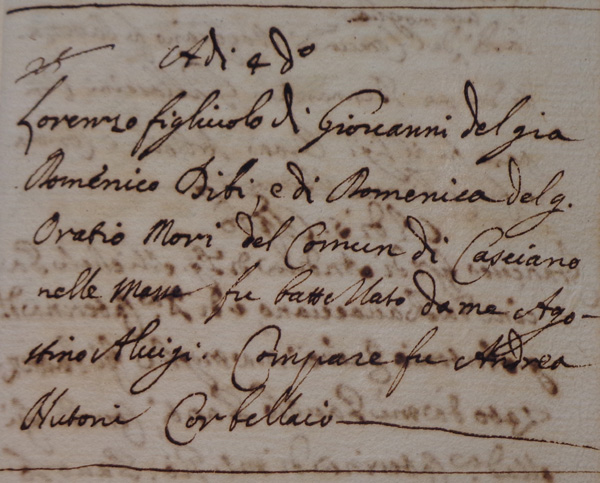 A di 4 do
Lorenzo figliuolo di Giovanni del gia
Domenico Bibi, e di Domenica del q.
Oratio Mori del Comun di Casciano
nelle Masse fu battellato da me Ago-
stino Aluigi. Compare fu Andrea
Corbellaio